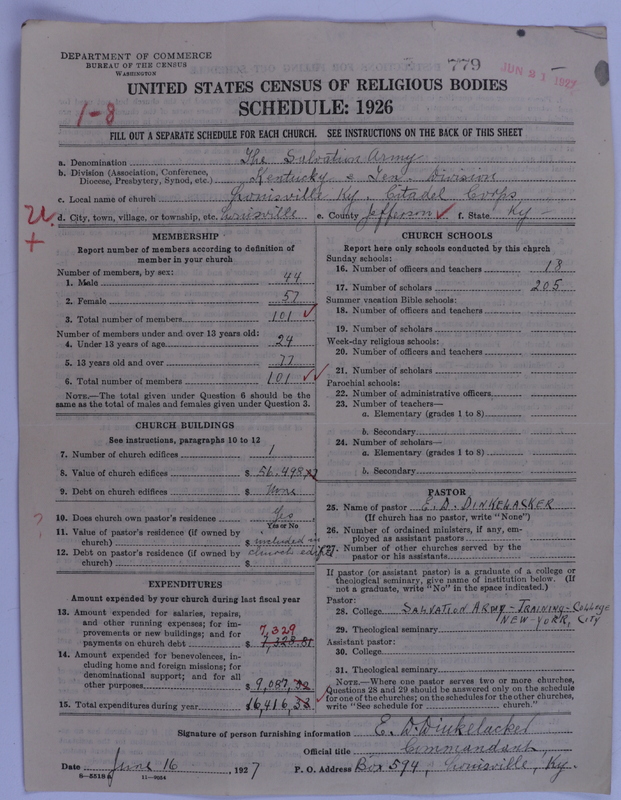 DEPARTMENT OF COMMERCE
BUREAU OF THE CENSUS
WASHINGTON
779
JUN 21 1927
UNITED STATES CENSUS OF RELIGIOUS BODIES
SCHEDULE: 1926
1-8
FILL OUT A SEPARATE SCHEDULE FOR EACH CHURCH. SEE INSTRUCTIONS ON THE BACK OF THIS SHEET
a. Denomination The Salvation Army
b. Division (Association, Conference, Diocese, Presbytery, Synod, etc.) Kentucky & Ten. Division
c. Local name of church Louisville Ky. Citadel Corps
d. City, town, village, or township, etc. Louisville e. County Jefferson f. State Ky
U.
+
MEMBERSHIP
Report number of members according to definition of
member in your church
Number of members, by sex:
1. Male 44
2. Female 57
3. Total number of members 101
Number of members under and over 13 years old:
4. Under 13 years of age 24
5. 13 years old and over 77
6. Total number of members 101
NOTE.—The total given under Question 6 should be the
same as the total of males and females given under Question 3.
CHURCH BUILDINGS
See instructions, paragraphs 10 to 12
7. Number of church edifices 1
8. Value of church edifices $ 56,498
9. Debt on church edifices $ None
10. Does church own pastor's residence Yes
Yes or No
?
11. Value of pastor's residence (if owned by
church) $ included in
12. Debt on pastor's residence (if owned by church edifice
church) $
EXPENDITURES
Amount expended by your church during last fiscal year
13. Amount expended for salaries, repairs,
and other running expenses; for im-
provements or new buildings; and for 7,329
payments on church debt $ 7,328.81
14. Amount expended for benevolences, in-
cluding home and foreign missions; for
denominational support; and for all
other purposes $ 9,087,52
15. Total expenditures during year 16,416,33
CHURCH SCHOOLS
Report here only schools conducted by this church
Sunday schools:
16. Number of officers and teachers 18
17. Number of scholars 205
Summer vacation Bible schools:
18. Number of officers and teachers
19. Number of scholars
Week-day religious schools:
20. Number of officers and teachers
21. Number of scholars
Parochial schools:
22. Number of administrative officers
23. Number of teachers—
a. Elementary (grades 1 to 8)
b. Secondary
24. Number of scholars—
a. Elementary (grades 1 to 8)
b. Secondary
PASTOR
25. Name of pastor E. D. DINKELACKER
(If church has no pastor, write "None")
26. Number of ordained ministers, if any, em-
ployed as assistant pastors
27. Number of other churches served by the
pastor or his assistants
If pastor (or assistant pastor) is a graduate of a college or
theological seminary, give name of institution below. (If
not a graduate, write "No" in the space indicated.)
Pastor:
28. College SALVATION ARMY-TRAINING-COLLEGE
NEW-YORK, CITY
29. Theological seminary
Assistant pastor:
30. College
31. Theological seminary
NOTE.—Where one pastor serves two or more churches,
Questions 28 and 29 should be answered only on the schedule
for one of the churches; on the schedules for the other churches,
write "See schedule for church."
Signature of person furnishing information E. D. Dinkelacker
Official title Commandant
Date June 16, 1927 P. O. Address Box 594, Louisville, Ky.
8-5518a 11-9024